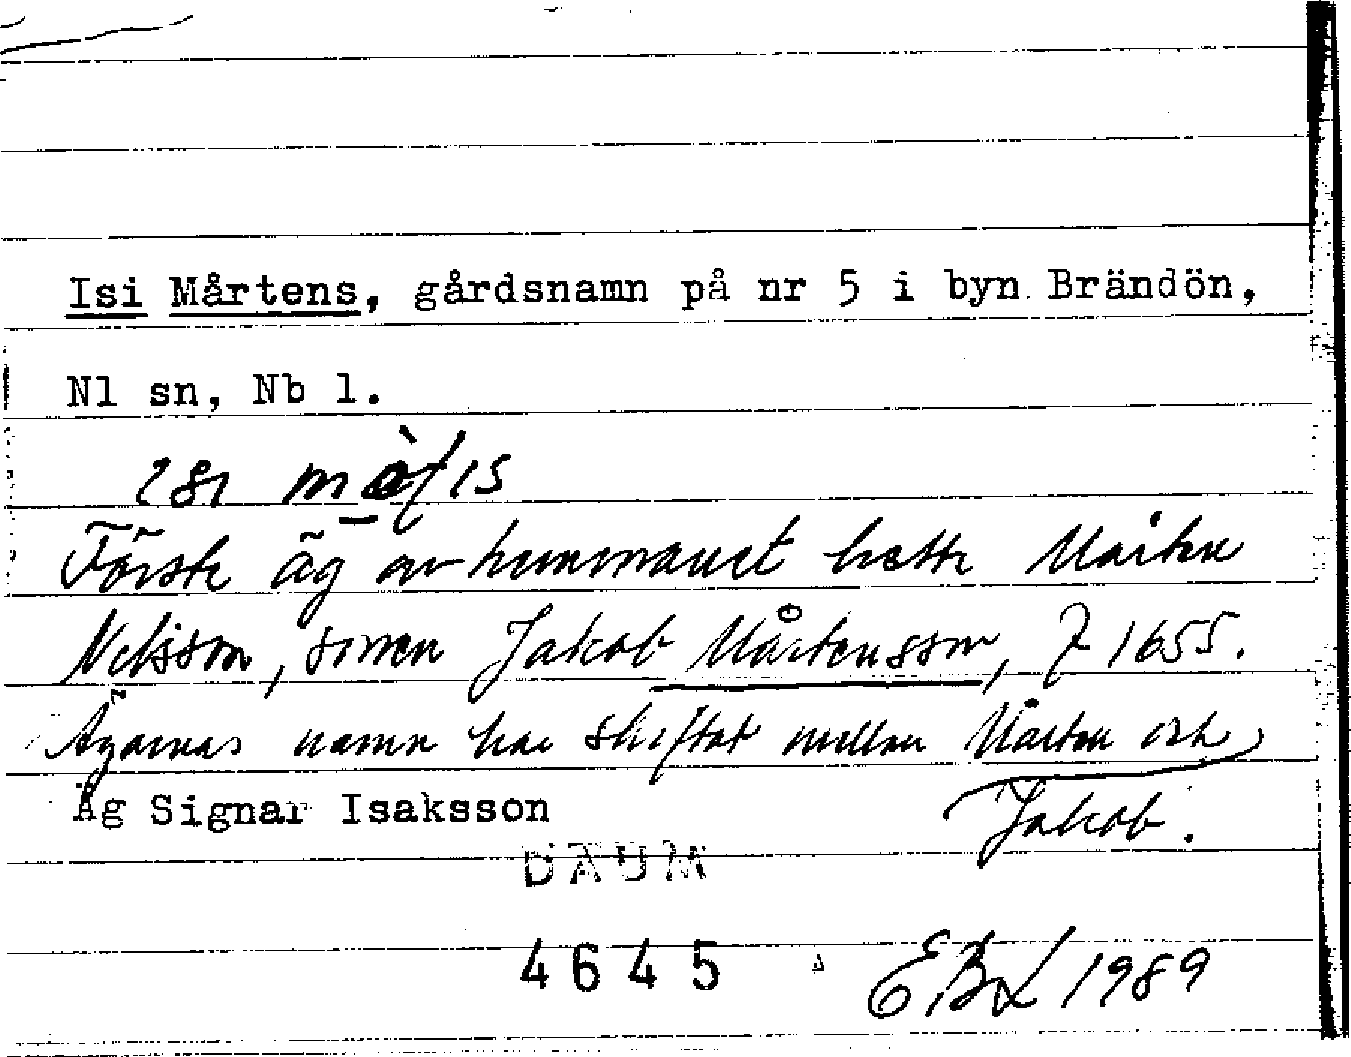 Isi Mårtens, gårdsnamn på nr 5 i byn Brändön,
Nl sn, Nb l.
Förste äg av hemmanet hette Mårten
Nilsson, sonen Jakob Mårtensson, f 1655.
Ägarnas namn har skiftat mellan Mårten och
Jakob.
Äg Signar Isaksson
DAUM
4645
EBL 1989